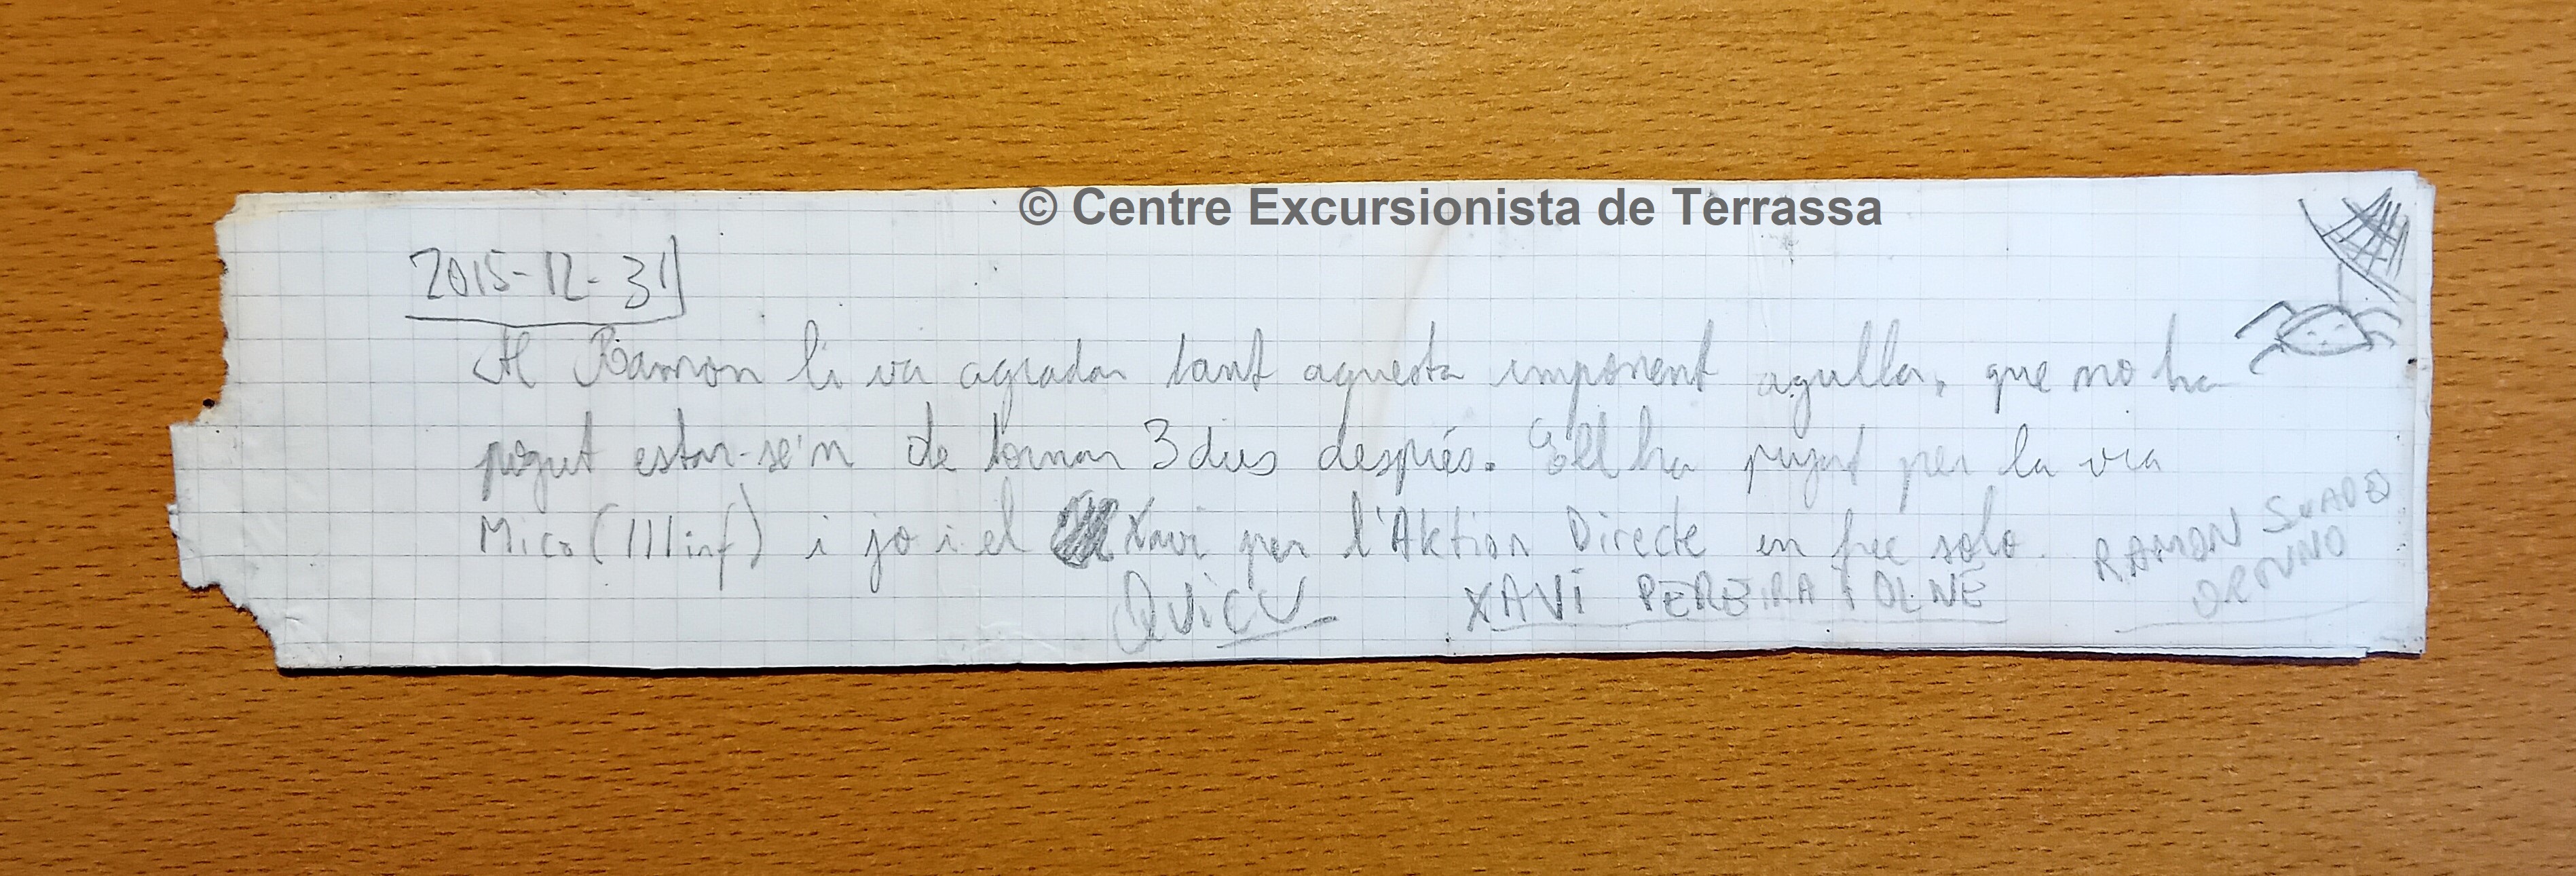 © Centre Excursionista de Terrassa
2015-12-31
Al Ramon li va agradar tant aquesta imponent agulla, que no ha
pogut estar-se'n de tornar 3 dies després. Ell ha pujat per la via
Mico (III inf) i jo i el Xavi per l'Aktion Directe en free solo.
QUICU XAVI PEREIRA RAMON